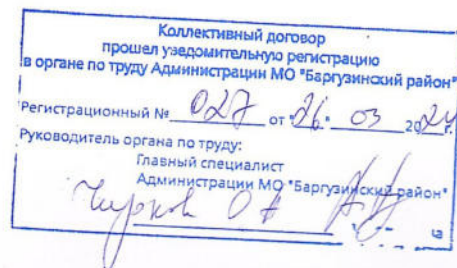 Коллективный договор
прошел уведомительную регистрацию
в органе по труду Администрации МО "Баргузинский район"
Регистрационный № 027 от "26" 03 2024 г.
Руководитель органа по труду:
Главный специалист
Администрации МО "Баргузинский район"